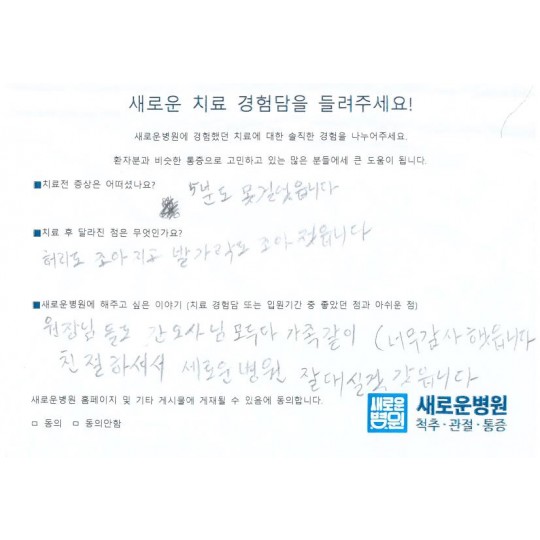 새로운 치료 경험담을 들려주세요!
새로운병원에 경험했던 치료에 대한 솔직한 경험을 나누어주세요.
환자분과 비슷한 통증으로 고민하고 있는 많은 분들에세 큰 도움이 됩니다.
■치료전 증상은 어떠셨나요?
5분도 못걸었읍니다
■치료 후 달라진 점은 무엇인가요?
허리도 조아지고 발가락도 조아젔읍니다
■새로운병원에 해주고 싶은 이야기 (치료 경험담 또는 입원기간 중 좋았던 점과 아쉬운 점)
원장님들도 간오사님 모두다 가족같이 (너무감사했읍니다
친절하셔서 세로운병원 잘대실것 갓읍니다
새로운병원 홈페이지 및 기타 게시물에 게재될 수 있음에 동의합니다.
□ 동의 □ 동의안함
새로운
병원
새로운병원
척추·관절·통증